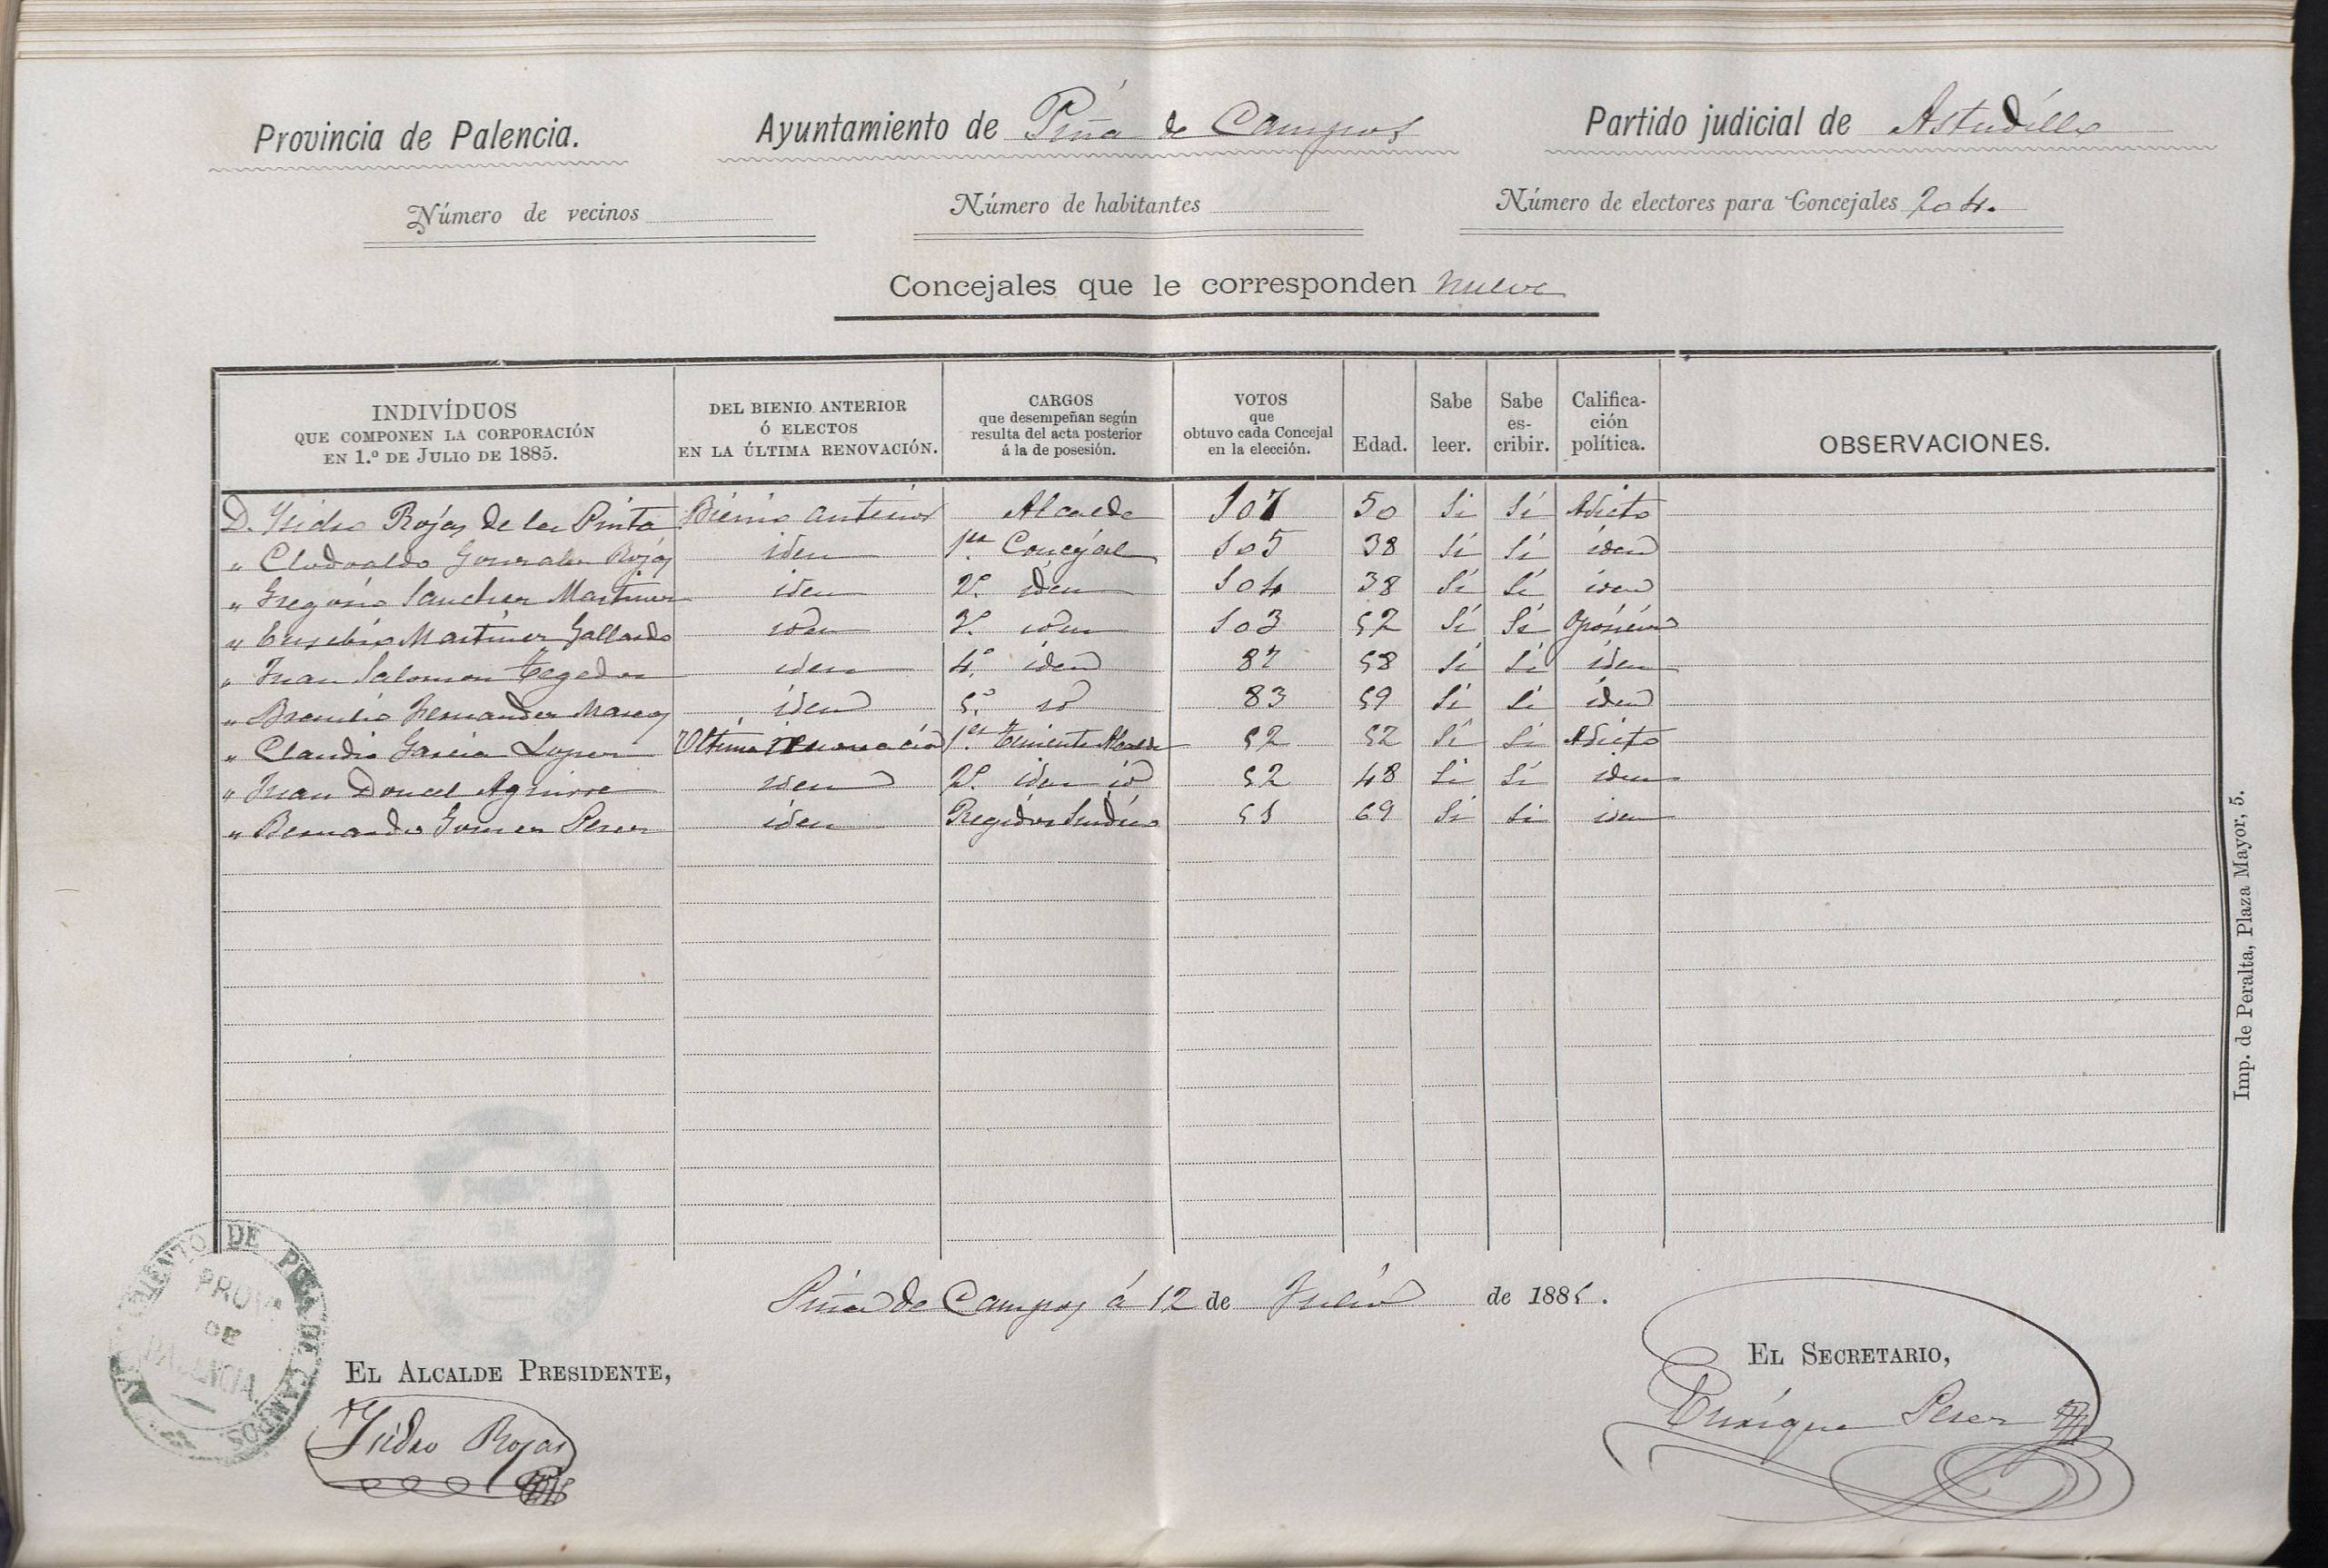 Provincia de Palencia. Ayuntamiento de Piña de Campos Partido judicial de Astudillo
Número de vecinos Número de habitantes Número de electores para Concejales 204.
Concejales que le corresponden nueve
INDIVÍDUOS QUE COMPONEN LA CORPORACIÓN EN 1.º DE JULIO DE 1885. DEL BIENIO ANTERIOR Ó ELECTOS EN LA ÚLTIMA RENOVACIÓN. CARGOS que desempeñan según resulta del acta posterior á la de posesión. VOTOS que obtuvo cada Concejal en la elección. Edad. Sabe leer. Sabe es-cribir. Califica-ción política. OBSERVACIONES.
D. Ysidro Rojas de la Pinta Bienio anterior Alcalde 107 50 Si Si Adicto
" Clodoaldo Gonzalez Rojas idem 1er Concejal 105 38 Si Si idem
" Gregorio Sanchez Martinez idem 2º. idem 104 38 Si Si idem
" Eusebio Martinez Gallardo idem 3º. idem 103 52 Si Si Oposicion
" Juan Salomon Tegedor idem 4º. idem 87 58 Si Si idem
" Braulio Fernandez Marcos idem 5º. id 83 59 Si Si idem
" Claudio Garcia Lopez Ultima renovacion 1er. Teniente Alcalde 52 52 Si Si Adicto
" Juan Doncel Aguirre idem 2º. idem id 52 48 Si Si idem
" Bernardo Gomez Perez idem Regidor Sindico 51 69 Si Si idem
Piña de Campos á 12 de Julio de 1885.
EL ALCALDE PRESIDENTE, EL SECRETARIO,
Ysidro Rojas Enrique Perez
AYUNTAMIENTO DE PIÑA DE CAMPOS
PROVA
DE
PALENCIA
Imp. de Peralta, Plaza Mayor, 5.